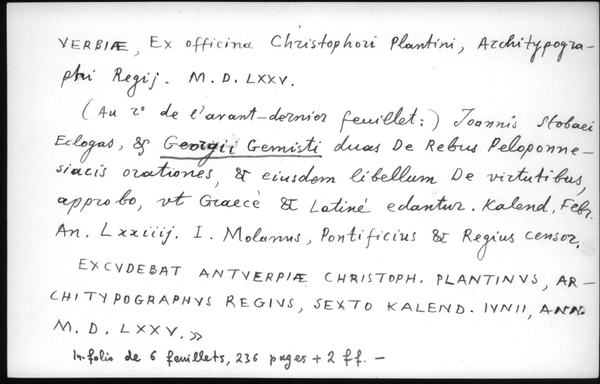 VERBIÆ, Ex officina Christophori Plantini, Architypogra-
phi Regij. M. D. LXXV.
(Au r° de l'avant-dernier feuillet:) Joannis Stobaei
Eclogas, & Georgii Gemisti duas De Rebus Peloponne-
siacis orationes, & eiusdem libellum De virtutibus,
approbo, vt Graecè & Latinè edantur. Kalend. Febr.
An. Lxxiiij. I. Molanus, Pontificius & Regius censor.
EXCVDEBAT ANTVERPIÆ CHRISTOPH. PLANTINVS, AR-
CHITYPOGRAPHVS REGIVS, SEXTO KALEND. IVNII, ANN.
M. D. LXXV. »
In-folio de 6 feuillets, 236 pages + 2 ff. -